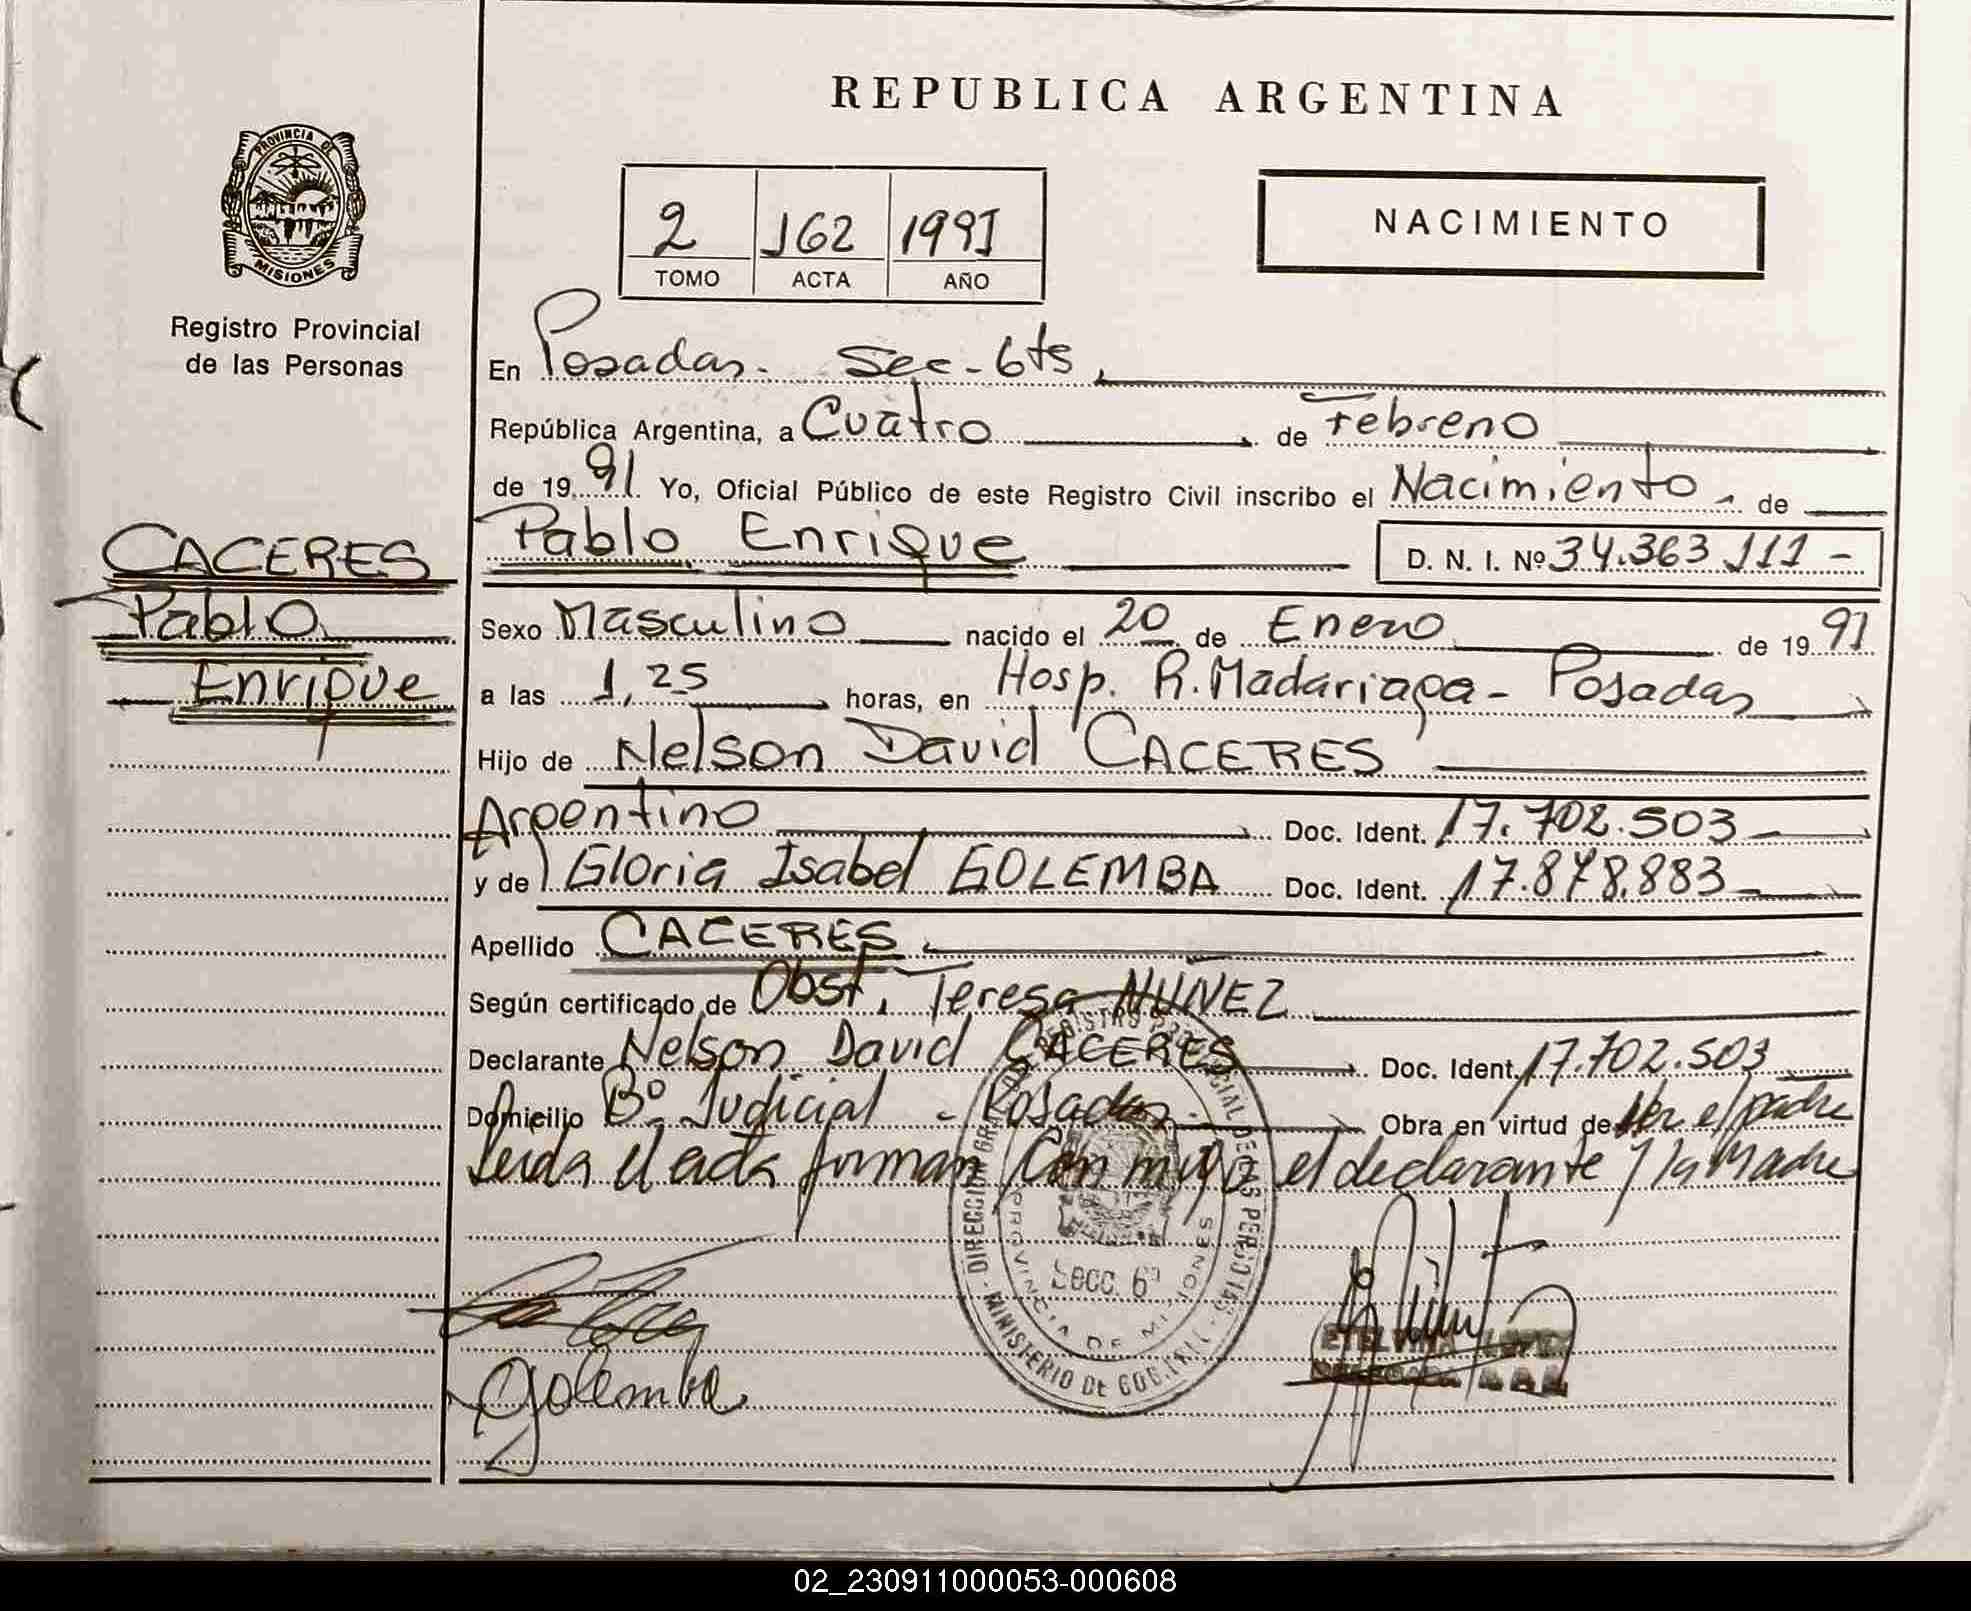 REPUBLICA ARGENTINA
PROVINCIA DE
MISIONES
Registro Provincial
de las Personas
2 162 1991
TOMO ACTA AÑO
NACIMIENTO
En Posadas - Sec - 6ts
República Argentina, a Cuatro de Febrero
de 19 91 Yo, Oficial Público de este Registro Civil inscribo el Nacimiento de
CACERES
Pablo
Enrique
Pablo Enrique D. N. I. Nº 34.363.111 -
Sexo Masculino nacido el 20 de Enero de 19 91
a las 1,25 horas, en Hosp. R. Madariaga - Posadas
Hijo de Nelson David CACERES
Argentino Doc. Ident. 17.702.503
y de Gloria Isabel GOLEMBA Doc. Ident. 17.878.883
Apellido CACERES
Según certificado de Obst. Teresa NUNEZ
Declarante Nelson David CACERES Doc. Ident. 17.702.503
Domicilio Bº Judicial - Posadas - Obra en virtud de ser el padre
Leida el acta firman con migo el declarante y la Madre
DIRECCION GRAL REGISTRO PROVINCIAL DE LAS PERSONAS
PROVINCIA DE MISIONES
SECC. 6ª
MINISTERIO DE GOB.
Golemba
ETELVINA
02_230911000053-000608